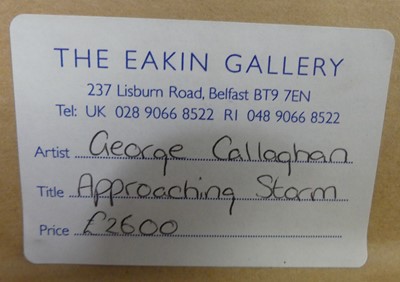 THE EAKIN GALLERY
237 Lisburn Road, Belfast BT9 7EN
Tel: UK 028 9066 8522 RI 048 9066 8522
Artist George Callaghan
Title Approaching Storm
Price £2600